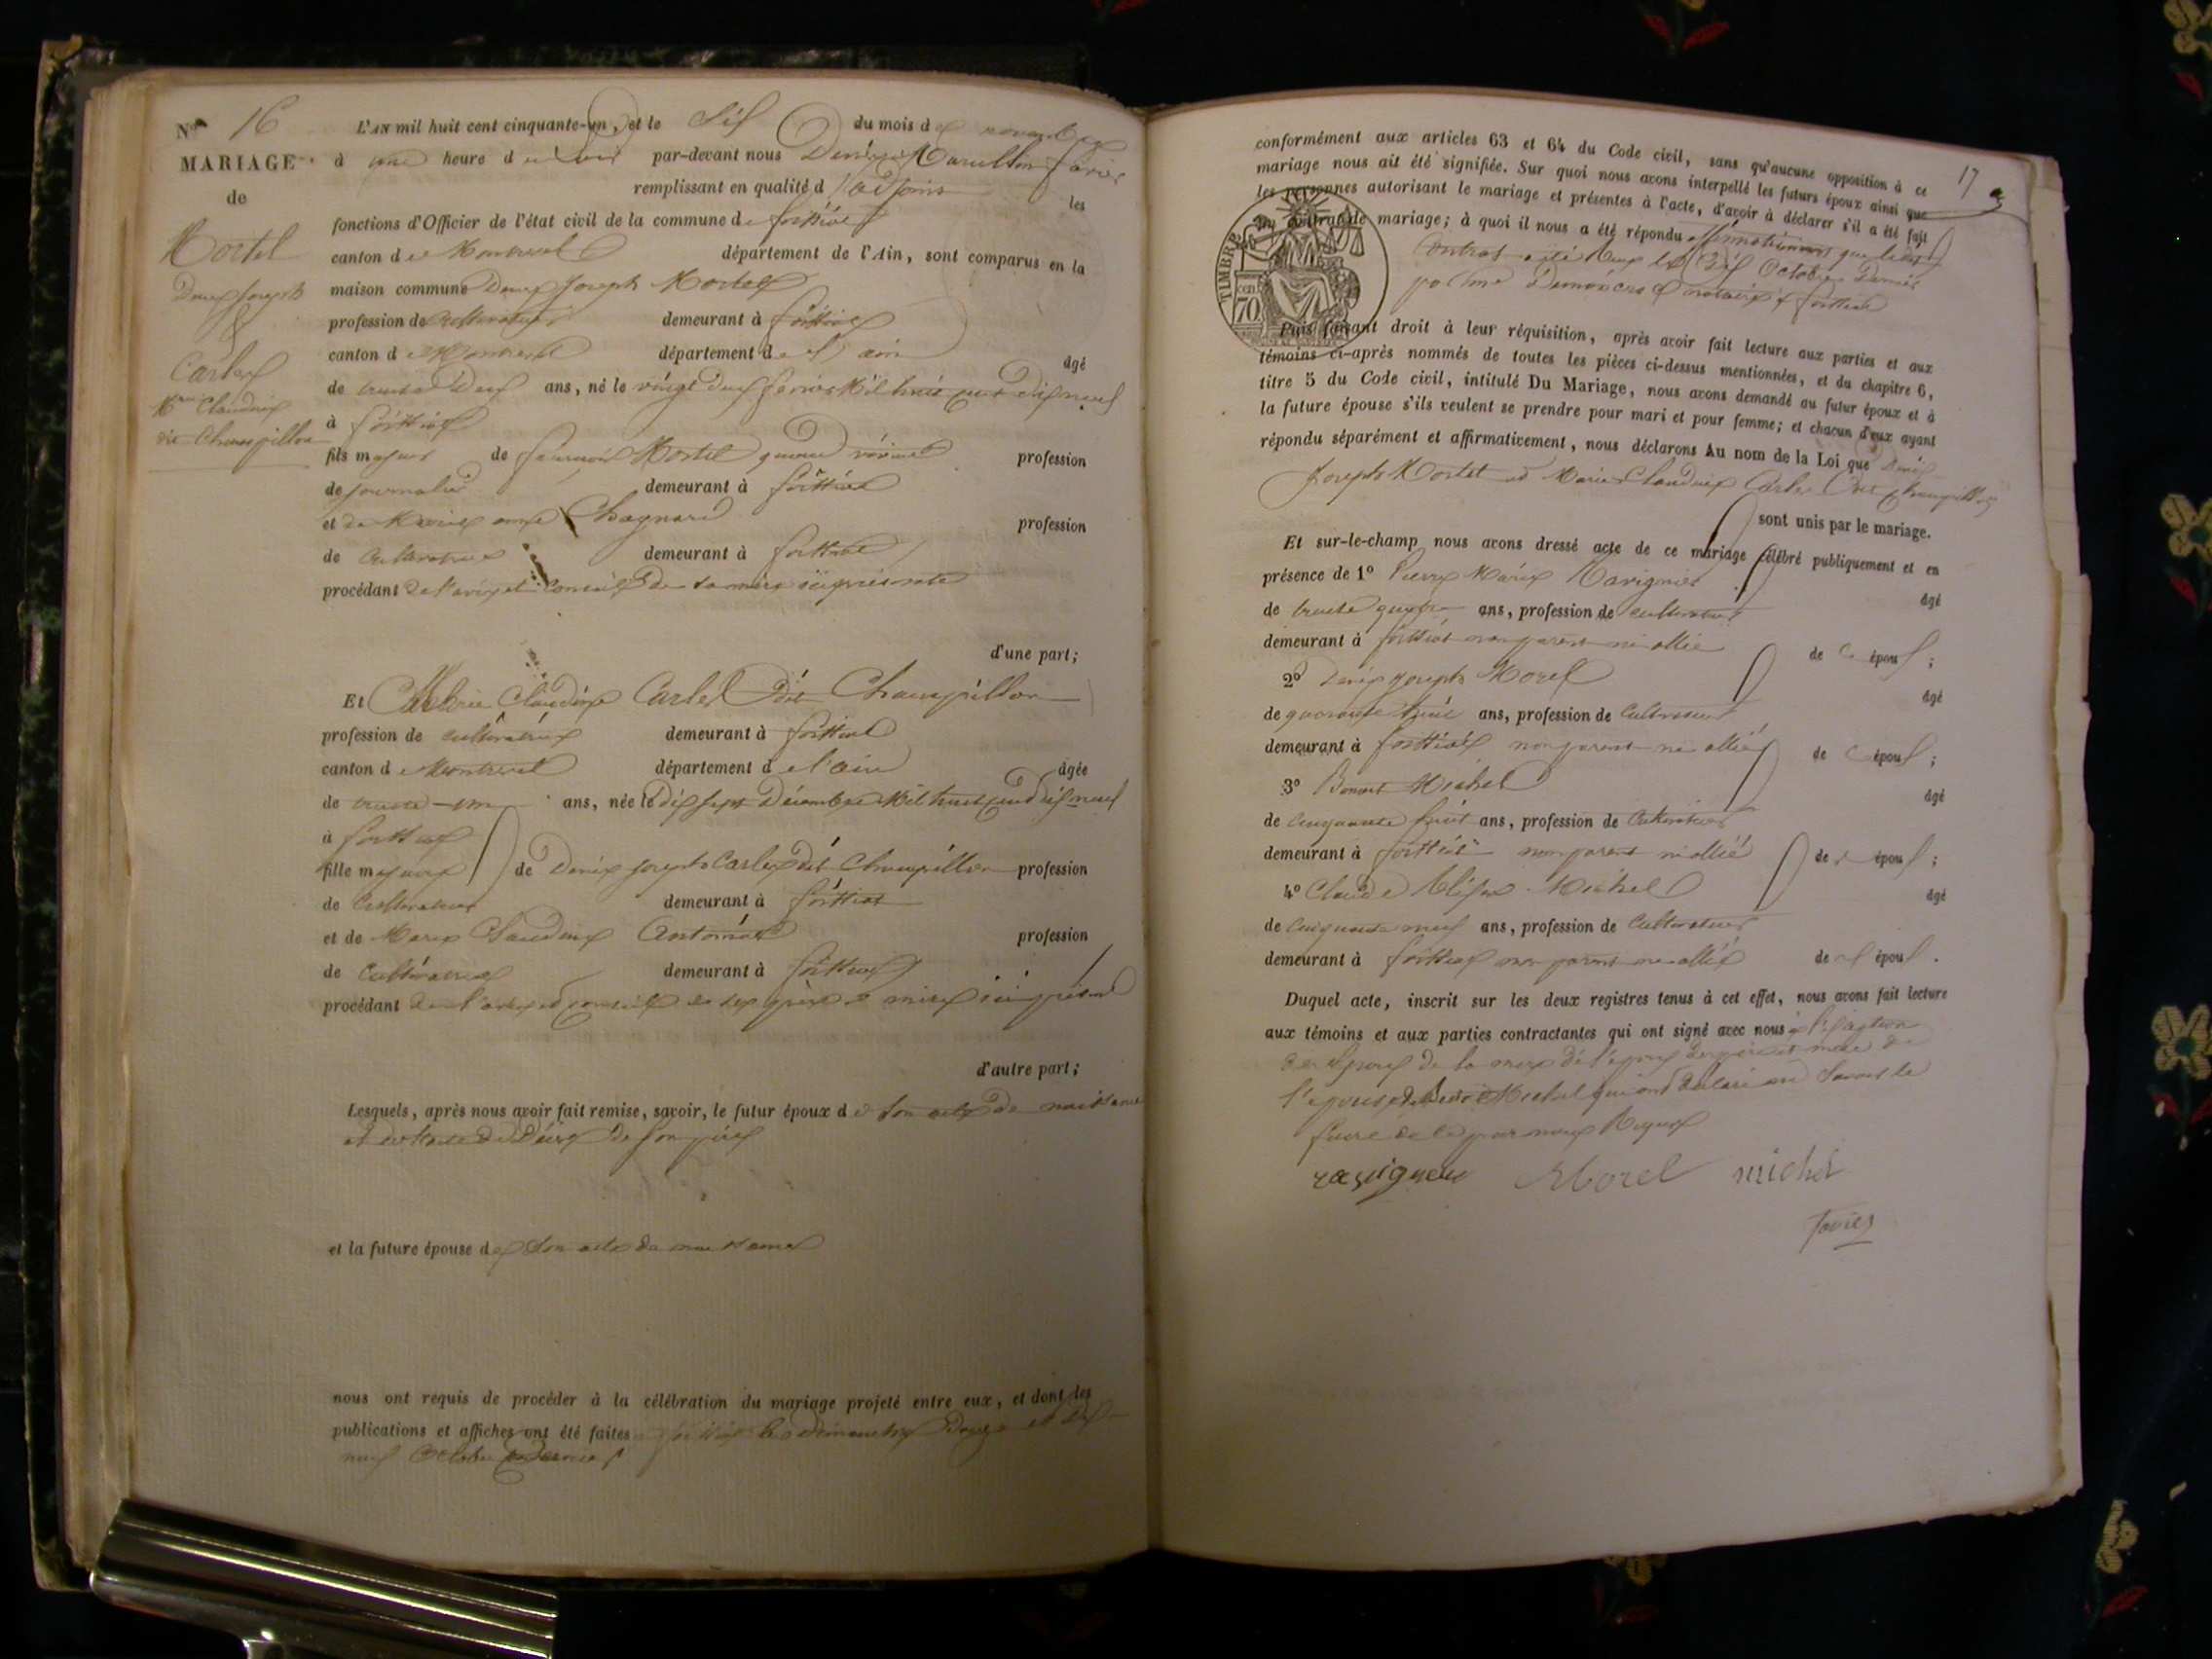 No 16
MARIAGE
de
Mortel
Denis Joseph
&
Carlet
Marie Claudine
dit Champillon
L'AN mil huit cent cinquante-un, et le dix du mois de novembre
à une heure du soir par-devant nous Denis Marullon favier
remplissant en qualité d'adjoint les
fonctions d'Officier de l'état civil de la commune de foissiat
canton de Montrevel département de l'Ain, sont comparus en la
maison commune Denis Joseph Mortel
profession de cultivateur demeurant à foissiat
canton de Montrevel département de l'ain âgé
de trente deux ans, né le vingt deux février Mil huit cent dix neuf
à foissiat
fils majeur de Mortel quand vivait profession
de journalier demeurant à foissiat
et de Marie anne Chagnard profession
de cultivatrice demeurant à foissiat
procédant de l'avis et conseil de sa mère ici présente
d'une part;
Et Marie Claudine Carlet dit Champillon
profession de cultivatrice demeurant à foissiat
canton de Montrevel département de l'ain âgée
de trente-un ans, née le dix sept Décembre Mil huit cent dix neuf
à foissiat
fille majeure de Denis joseph Carlet dit Champillon profession
de Cultivateur demeurant à foissiat
et de Marie Claudine profession
de Cultivatrice demeurant à foissiat
procédant de l'avis et conseil de ses père et mère ici présents
d'autre part;
Lesquels, après nous avoir fait remise, savoir, le futur époux de son acte de naissance
et de l'acte de décès de son père
et la future épouse de son acte de naissance
nous ont requis de procéder à la célébration du mariage projeté entre eux, et dont les
publications et affiches ont été faites à foissiat les dimanches douze et dix
neuf Octobre dernier
17
conformément aux articles 63 et 64 du Code civil, sans qu'aucune opposition à ce
mariage nous ait été signifiée. Sur quoi nous avons interpellé les futurs époux ainsi que
les personnes autorisant le mariage et présentes à l'acte, d'avoir à déclarer s'il a été fait
un contrat de mariage; à quoi il nous a été répondu affirmativement que ledit
contrat a été reçu le dix Octobre Dernier
par me notaire à foissiat
TIMBRE
70
Puis faisant droit à leur réquisition, après avoir fait lecture aux parties et aux
témoins ci-après nommés de toutes les pièces ci-dessus mentionnées, et du chapitre 6,
titre 5 du Code civil, intitulé Du Mariage, nous avons demandé au futur époux et à
la future épouse s'ils veulent se prendre pour mari et pour femme; et chacun d'eux ayant
répondu séparément et affirmativement, nous déclarons Au nom de la Loi que Denis
Joseph Mortel et Marie Claudine Carlet dit Champillon
sont unis par le mariage.
Et sur-le-champ nous avons dressé acte de ce mariage célébré publiquement et en
présence de 1º Pierre Marie Ravignier âgé
de trente quatre ans, profession de cultivateur
demeurant à foissiat non parent ni allié de époux;
2º Denis joseph Morel âgé
de quarante huit ans, profession de Cultivateur
demeurant à foissiat non parent ni allié de époux;
3º Benoit Michel âgé
de cinquante huit ans, profession de Cultivateur
demeurant à foissiat non parent ni allié des époux;
4º Claude Michel âgé
de cinquante neuf ans, profession de Cultivateur
demeurant à foissiat non parent ni allié des époux.
Duquel acte, inscrit sur les deux registres tenus à cet effet, nous avons fait lecture
aux témoins et aux parties contractantes qui ont signé avec nous à l'exception
de l'époux de la mère de l'époux des père et mère de
l'épouse de Benoit Michel qui ont déclaré ne savoir le
faire de ce par nous Requis
ravignier Morel michel
favier